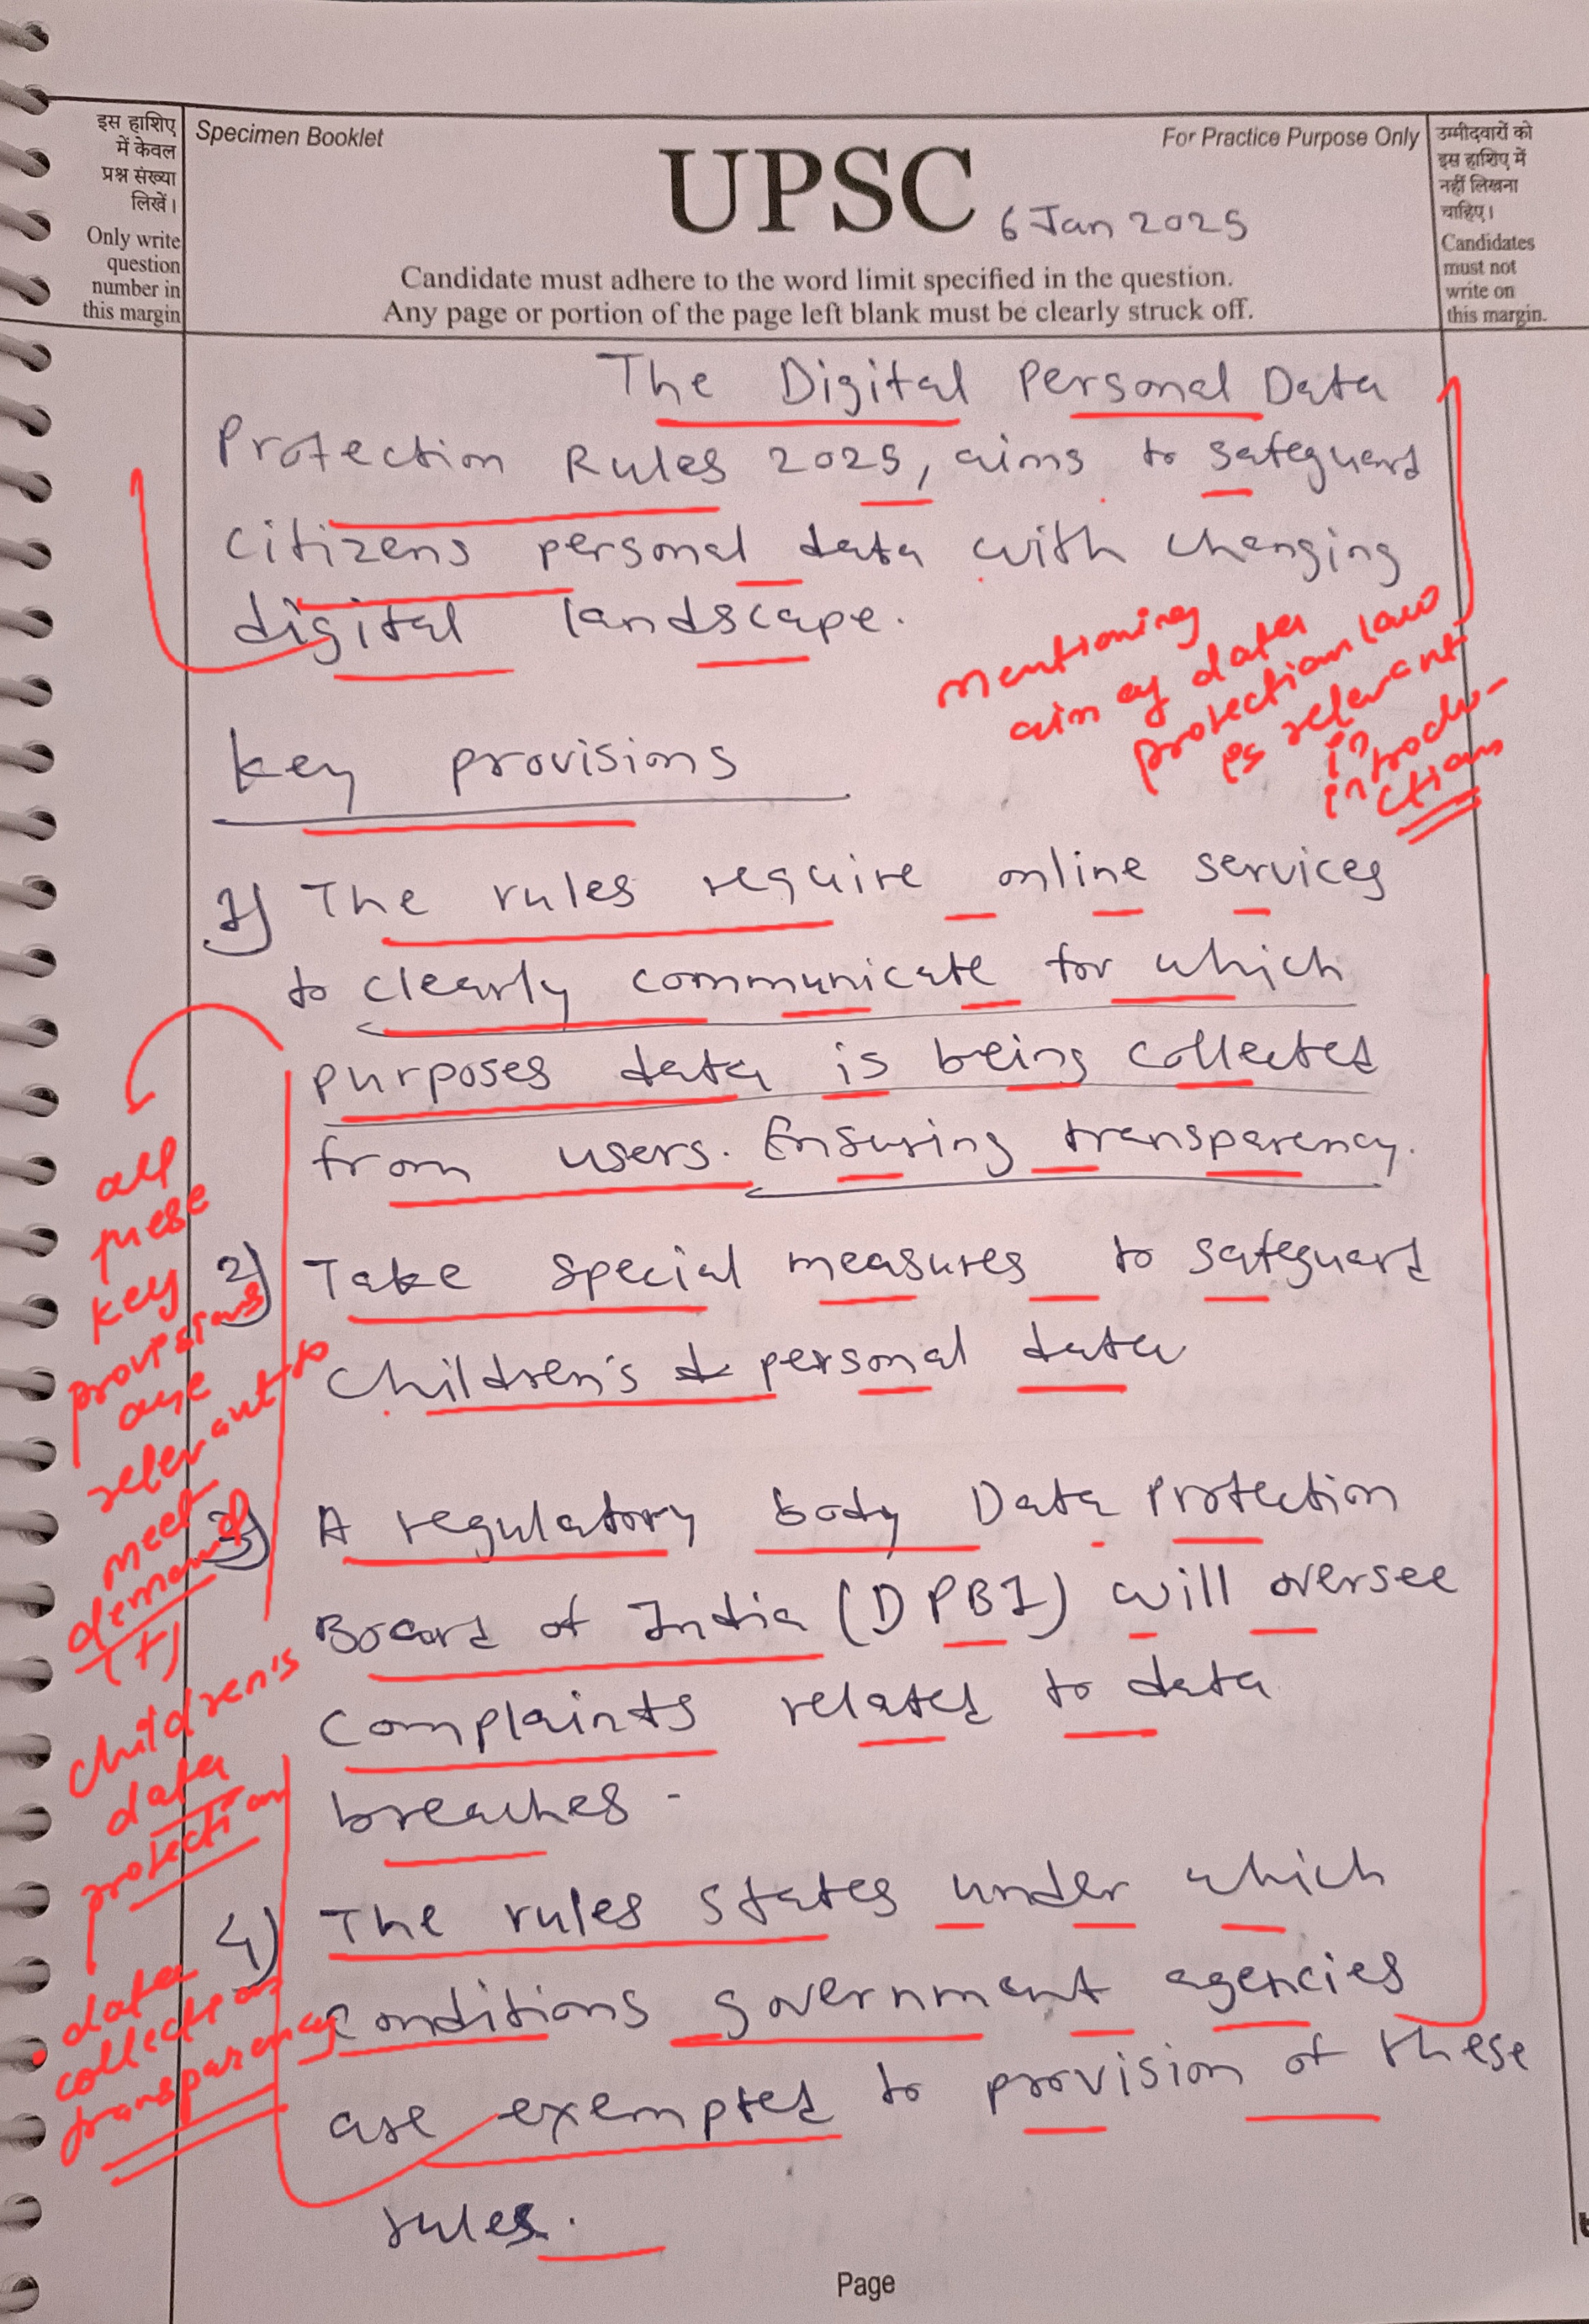 इस हाशिए
में केवल
प्रश्न संख्या
लिखें।
Only write
question
number in
this margin
Specimen Booklet
For Practice Purpose Only
UPSC
6 Jan 2025
Candidate must adhere to the word limit specified in the question.
Any page or portion of the page left blank must be clearly struck off.
उम्मीदवारों को
इस हाशिए में
नहीं लिखना
चाहिए।
Candidates
must not
write on
this margin.
The Digital Personal Data
Protection Rules 2025, aims to safeguard
citizens personal data with changing
digital landscape.
mentioning
aim of data
protection law
is relevant
in
introdu-
ction
Key provisions
1) The rules require online services
to clearly communicate for which
purposes data is being collected
from users. Ensuring transparency.
2) Take special measures to safeguard
children's personal data
3) A regulatory body Data Protection
Board of India (DPBI) will oversee
complaints related to data
breaches.
4) The rules states under which
conditions government agencies
are exempted to provision of these
rules.
all
these
key
provisions
are
relevant to
meet
demand
(+)
children's
data
protection
data
collection
transparency
Page